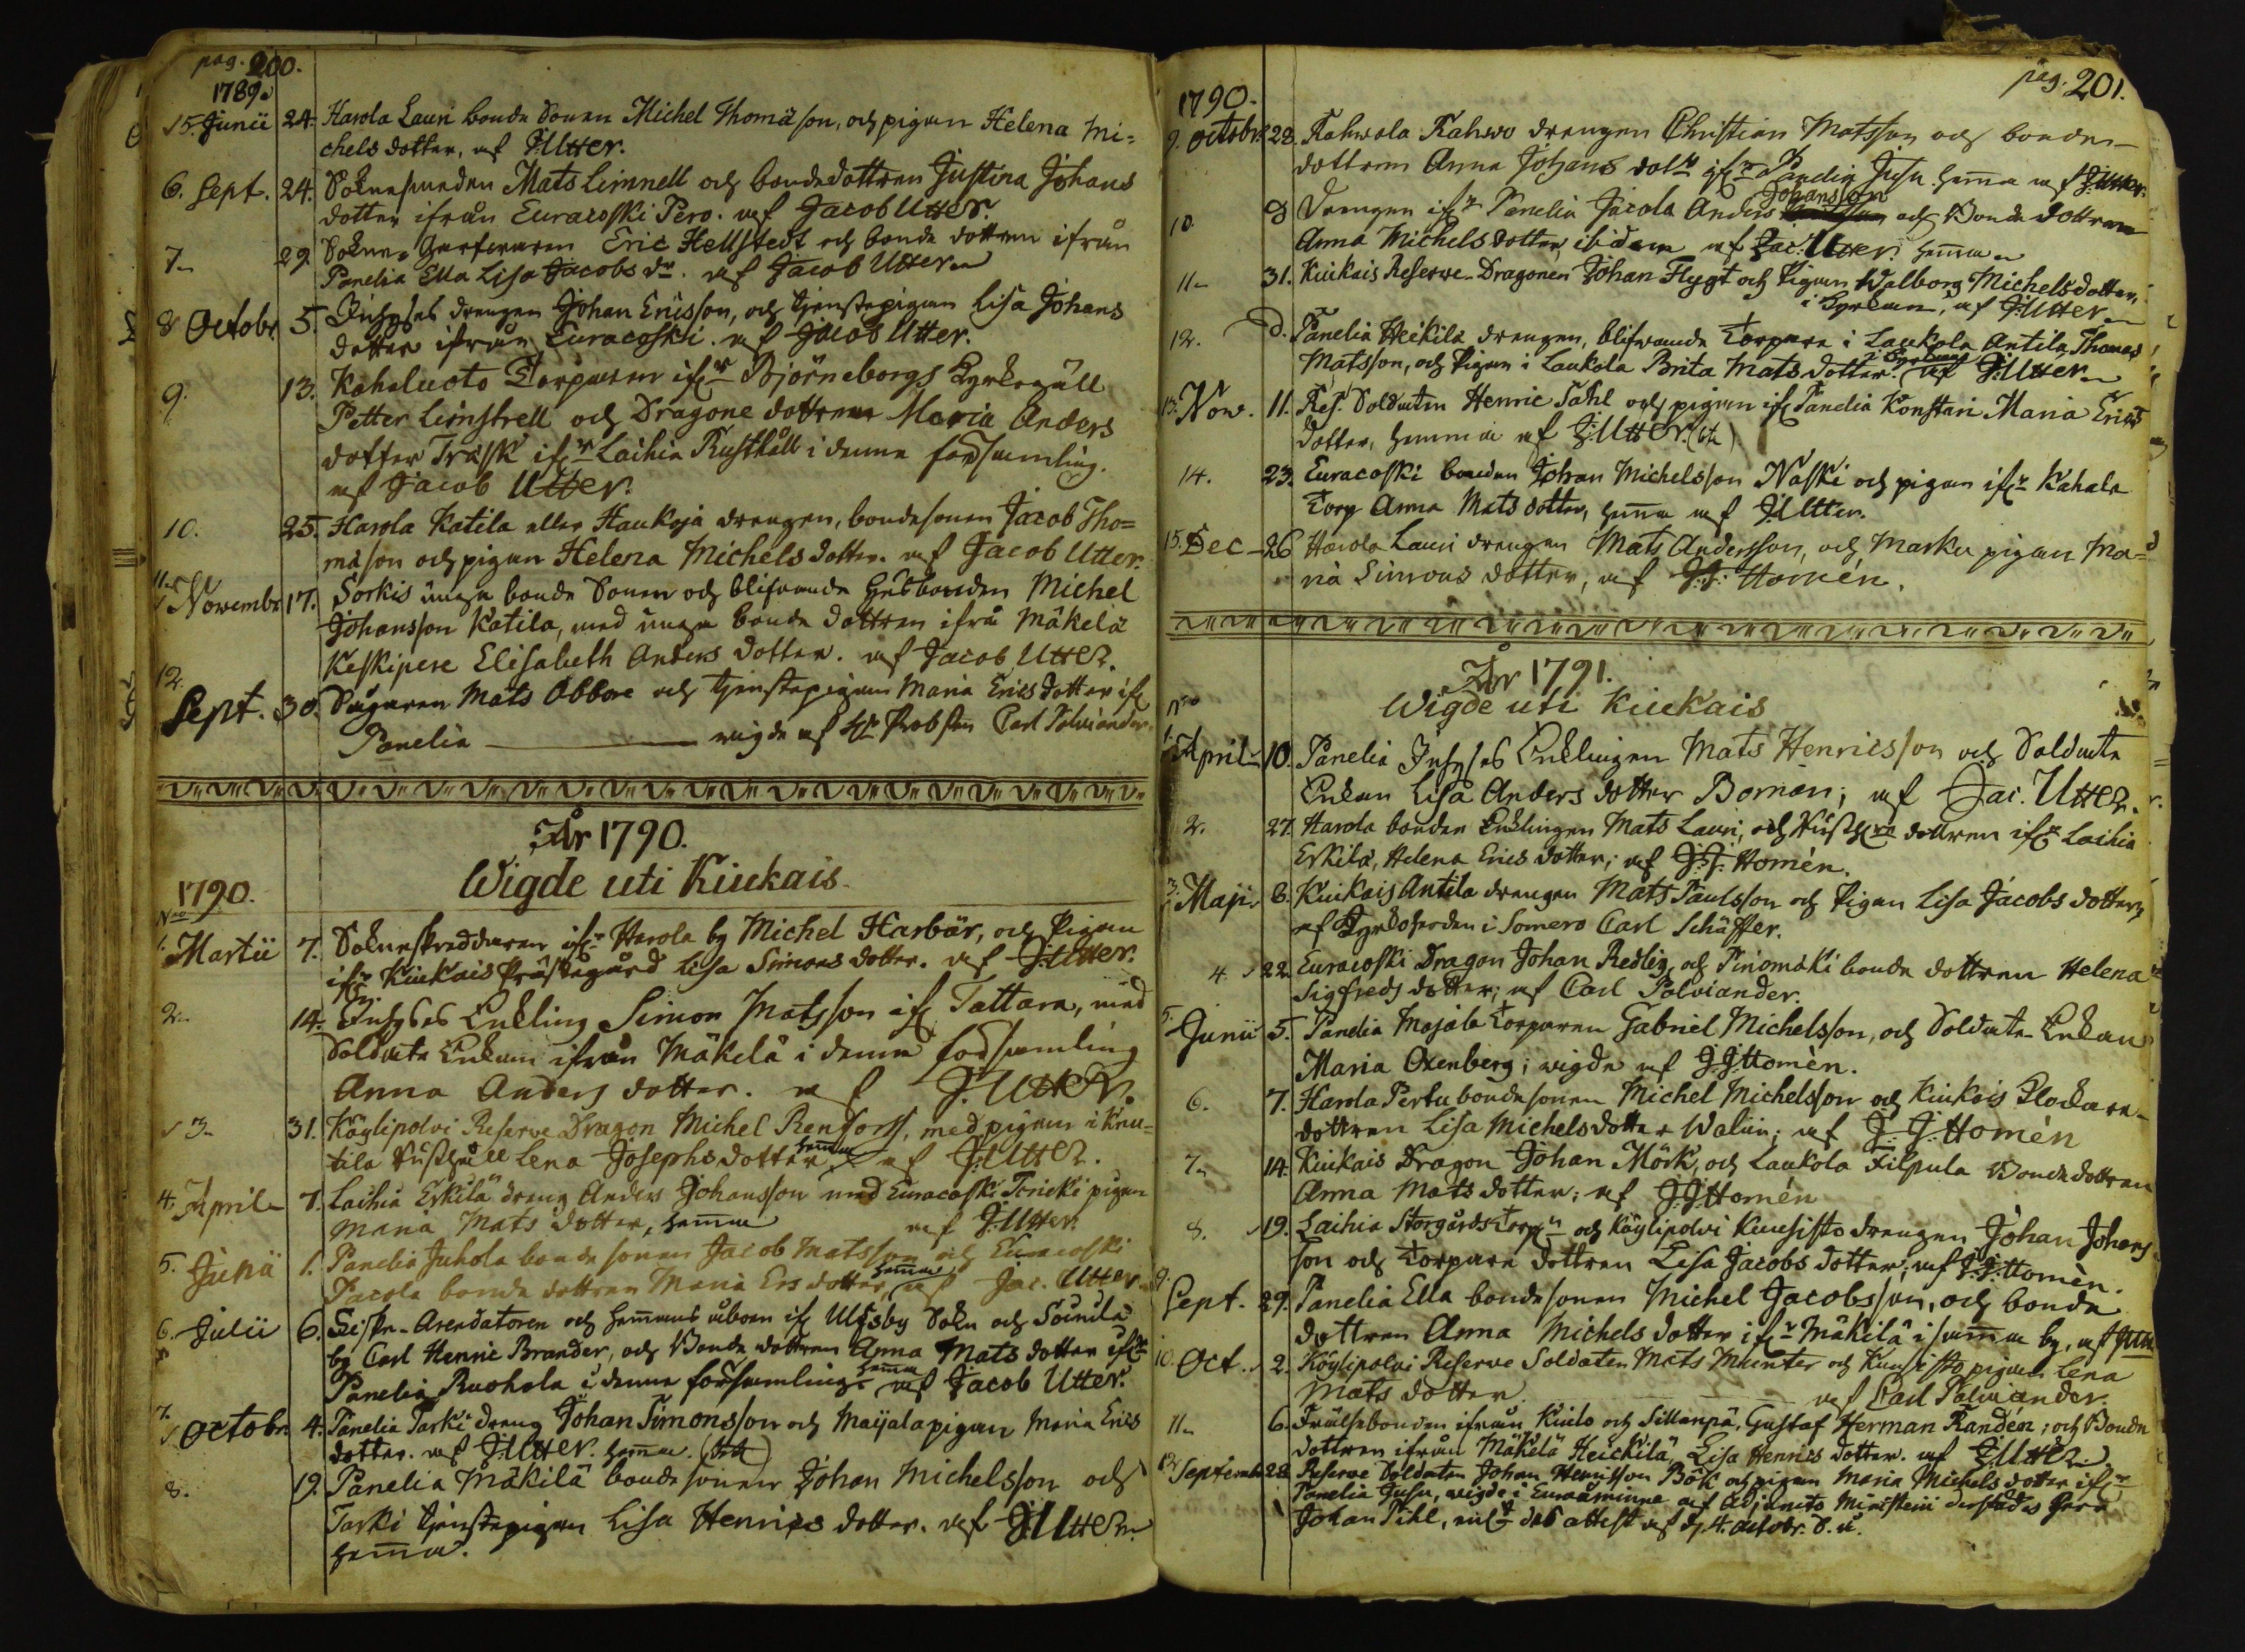 pag. 200.
1789.
5. Junii 24. Harola Lauri bonde Sonen Michel Thomäson, och pigan Helena Mi=
chels dotter, af J: Utter.
6. Sept. 24. Soknesmeden Mats Limnell och bondedottren Justina Johans
dotter ifrån Euracoski Pero. af Jacob Utter.
7. 29. Sokne-garfwaren Eric Hellstedt och bonde dottren ifrån
Panelia Ella Lisa Jacobs dr. af Jacob Utter.
8 Octobr. 5. Inhyses drengen Johan Ericsson, och tjenstepigan Lisa Johans
dotter ifrån Euracoski. af Jacob Utter.
9. 13. Kahaluoto Torparen ifr. Björneborgs Kyrkogäll
Petter Limstrell och Dragone dottren Maria Anders
dotter Träsk ifr. Laihia Rusthåll i denna församling.
af Jacob Utter.
10. 25. Harola Katila eller Haukoja drengen, bondesonen Jacob Tho=
mäson och pigan Helena Michels dotter. af Jacob Utter.
11. Novembr 17. Sorkis unga bonde Sonen och blifvande Husbonden Michel
Johansson Katila, med unga bonde dottren ifrå Mäkelä
Keskipere Elisabeth Anders dotter. af Jacob Utter.
12. Sept. 30. Sågaren Mats Obbore och tjenstepigan Maria Erics dotter ifr
Panelia wigde af Hr Probsten Carl Polviander.
År 1790.
Wigde uti Kiukais.
1790.
Nro
1. Martii 7. Sokneskreddaren ifr. Harola by Michel Harbär, och Pigan
ifr. Kiukais Prästegård Lisa Simons dotter. af J: Utter.
2. 14. Inhyses Enkling Simon Matsson ifr Tattara, med
Soldate Enkan ifrån Mäkelä i denna församling
Anna Anders dotter. af J. Utter.
3. 31. Köylipolvi Reserve Dragon Michel Renfors, med pigan i Knu=
tila Rusthåll Lena Josephs dotter, hemma af J: Utter.
4. April 7. Laihia Eskilä dreng Anders Johansson med Euracoski pigan
Maria Mats dotter, hemma af J: Utter.
5. Junii 1. Panelia Juhola bonde sonen Jacob Matsson och Euracoski
Pacola bonde dottren Maria Ers dotter, hemma af Jac. Utter.
6. Julii 6. Arendatoren och Hemmans åboen ifr Ulfsby Sokn och
by Carl Henric Brander, och Bonde dottren Anna Mats dotter ifr
Panelia Ruohola i denna församling hemma af Jacob Utter.
7. Octobr. 4. Panelia Tarki dreng Johan Simonsson och Maijala pigan Maria Erics
dotter. af J: Utter. hemma.
8. 19. Panelia Mäkilä bonde sonen Johan Michelsson och
Tarki tjenstepigan Lisa Henrics dotter. af J: Utter
hemma.
pag. 201.
1790.
9. Octobr. 28. Kahwola Kahwo drengen Christian Matsson och bonde
dottren Anna Johans dotr ifr. Panelia Jusu hemma af J: Utter.
10. Drengen ifr. Panelia Jacola Anders Johansson och Bonde dottren
Anna Michels dotter, ibidem af Jac: Utter. hemma
11. 31. Kiukais Reserve-Dragonen Johan Flygt och Pigan Walborg Michelsdotter,
i Kyrkan, af J: Utter.
12. d. Panelia Heikilä drengen, blifwande Torpare i Laukola Antila Thomas
Matsson, och Pigan i Laukola Brita Mats dotter. i Kyrkan af J: Utter
13. Nov. 11. Res. Soldaten Henric Tahl och pigan ifr Panelia Konstari Maria Erics
dotter, hemma af J: Utter.
14. 23. Euracoski bonden Johan Michelsson Naski och pigan ifr. Kahala
Torp Anna Mats dotter, hemma af J: Utter.
15. Dec 26 Harola Lauri drengen Mats Andersson, och Marku pigan Ma=
ria Simons dotter, af J: J: Homén.
År 1791.
Wigde uti Kiukais
Nro
1. April 10. Panelia Inhyses Enklingen Mats Henricsson och Soldate
Enkan Lisa Anders dotter Boman; af Jac. Utter.
2. 27. Harola bonden Enklingen Mats Lauri, och dottren ifr. Laihia
Eskilä, Helena Erics dotter; af J: J: Homèn.
3. Maji 6. Kiukais Antila drengen Mats Paulsson och Pigan Lisa Jacobs dotter,
af Kyrkoherden i Somero Carl Schäffer.
4. 22 Euracoski Dragon Johan Redlig, och Pinomäki bonde dottren Helena
Sigfreds dotter; af Carl Polviander.
5. Junii 5. Panelia Majala Torparen Gabriel Michelsson, och Soldate-Enkan
Maria Oxenberg; wigde af J: J: Homèn.
6. 7. Harola Pertu bondesonen Michel Michelsson och Kiukais Klockare-
dottren Lisa Michelsdotter Walin; af J: J: Homèn
7. 14. Kiukais Dragon Johan Mörk, och Laukola Filpula Bonde dottren
Anna Mats dotter; af J: J: Homén
8. 19. Laihia Storgårds Torp och Köylipolvi Kuusisto drengen Johan Johans
son och Torpare dottren Lisa Jacobs dotter; af J: J: Homèn.
9. Sept. 29. Panelia Ella bondesonen Michel Jacobsson, och bonde
dottren Anna Michels dotter ifr Mäkilä i samma by, af J: Utter
10. Oct. 2. Köylipolvi Reserve Soldaten Mats Munter och Kuusisto pigan Lena
Mats dotter. af Carl Polviander.
11. 6. Frälsebonden ifrån Kiulo och Sillanpä, Gustaf Herman Randén; och Bonde
dottren ifrån Mäkelä Heickilä Lisa Henrics dotter. af J: Utter.
12. September 28 Reserve Soldaten Johan Henricsson Bök och pigan Maria Michels dotter ifr
Panelia Jusu, wigde i Euraåminne af Adjuncto Ministerii derstädes Herr
Johan Pihl, enl. des attest af d. 4. octobr. d. å.